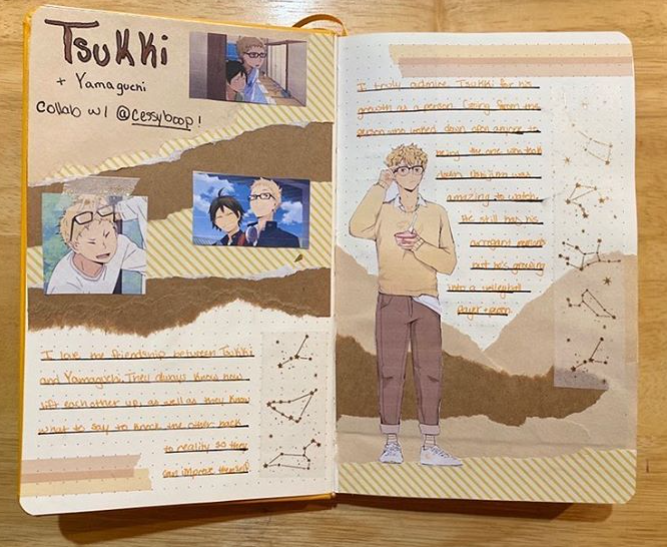 Tsukki
+ Yamaguchi
Collab w/ @cessyboop!
I love the friendship between Tsukki
and Yamaguchi. They always know how
lift each other up, as well as they know
what to say to knock the other back
to reality so they
can improve
I truly admire Tsukki for his
growth as a person. Going from the
person who looked down upon anyone to
being for one who took
amazing to watch.
He still has his
arrogant
but he's growing
into a volleyball
player + person